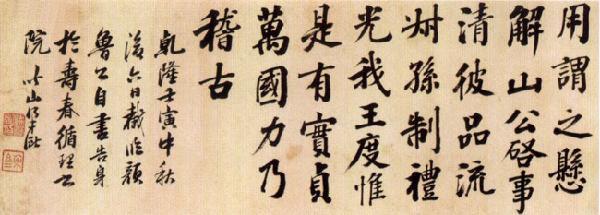 用謂之懸
解山公啓事
清彼品流
叔孫制禮
光我王度惟
是有實貞
萬國力乃
稽古
乾隆壬寅中秋
後六日戲臨顏
魯公自書告身
於壽春循理書
院 聞山梁巘